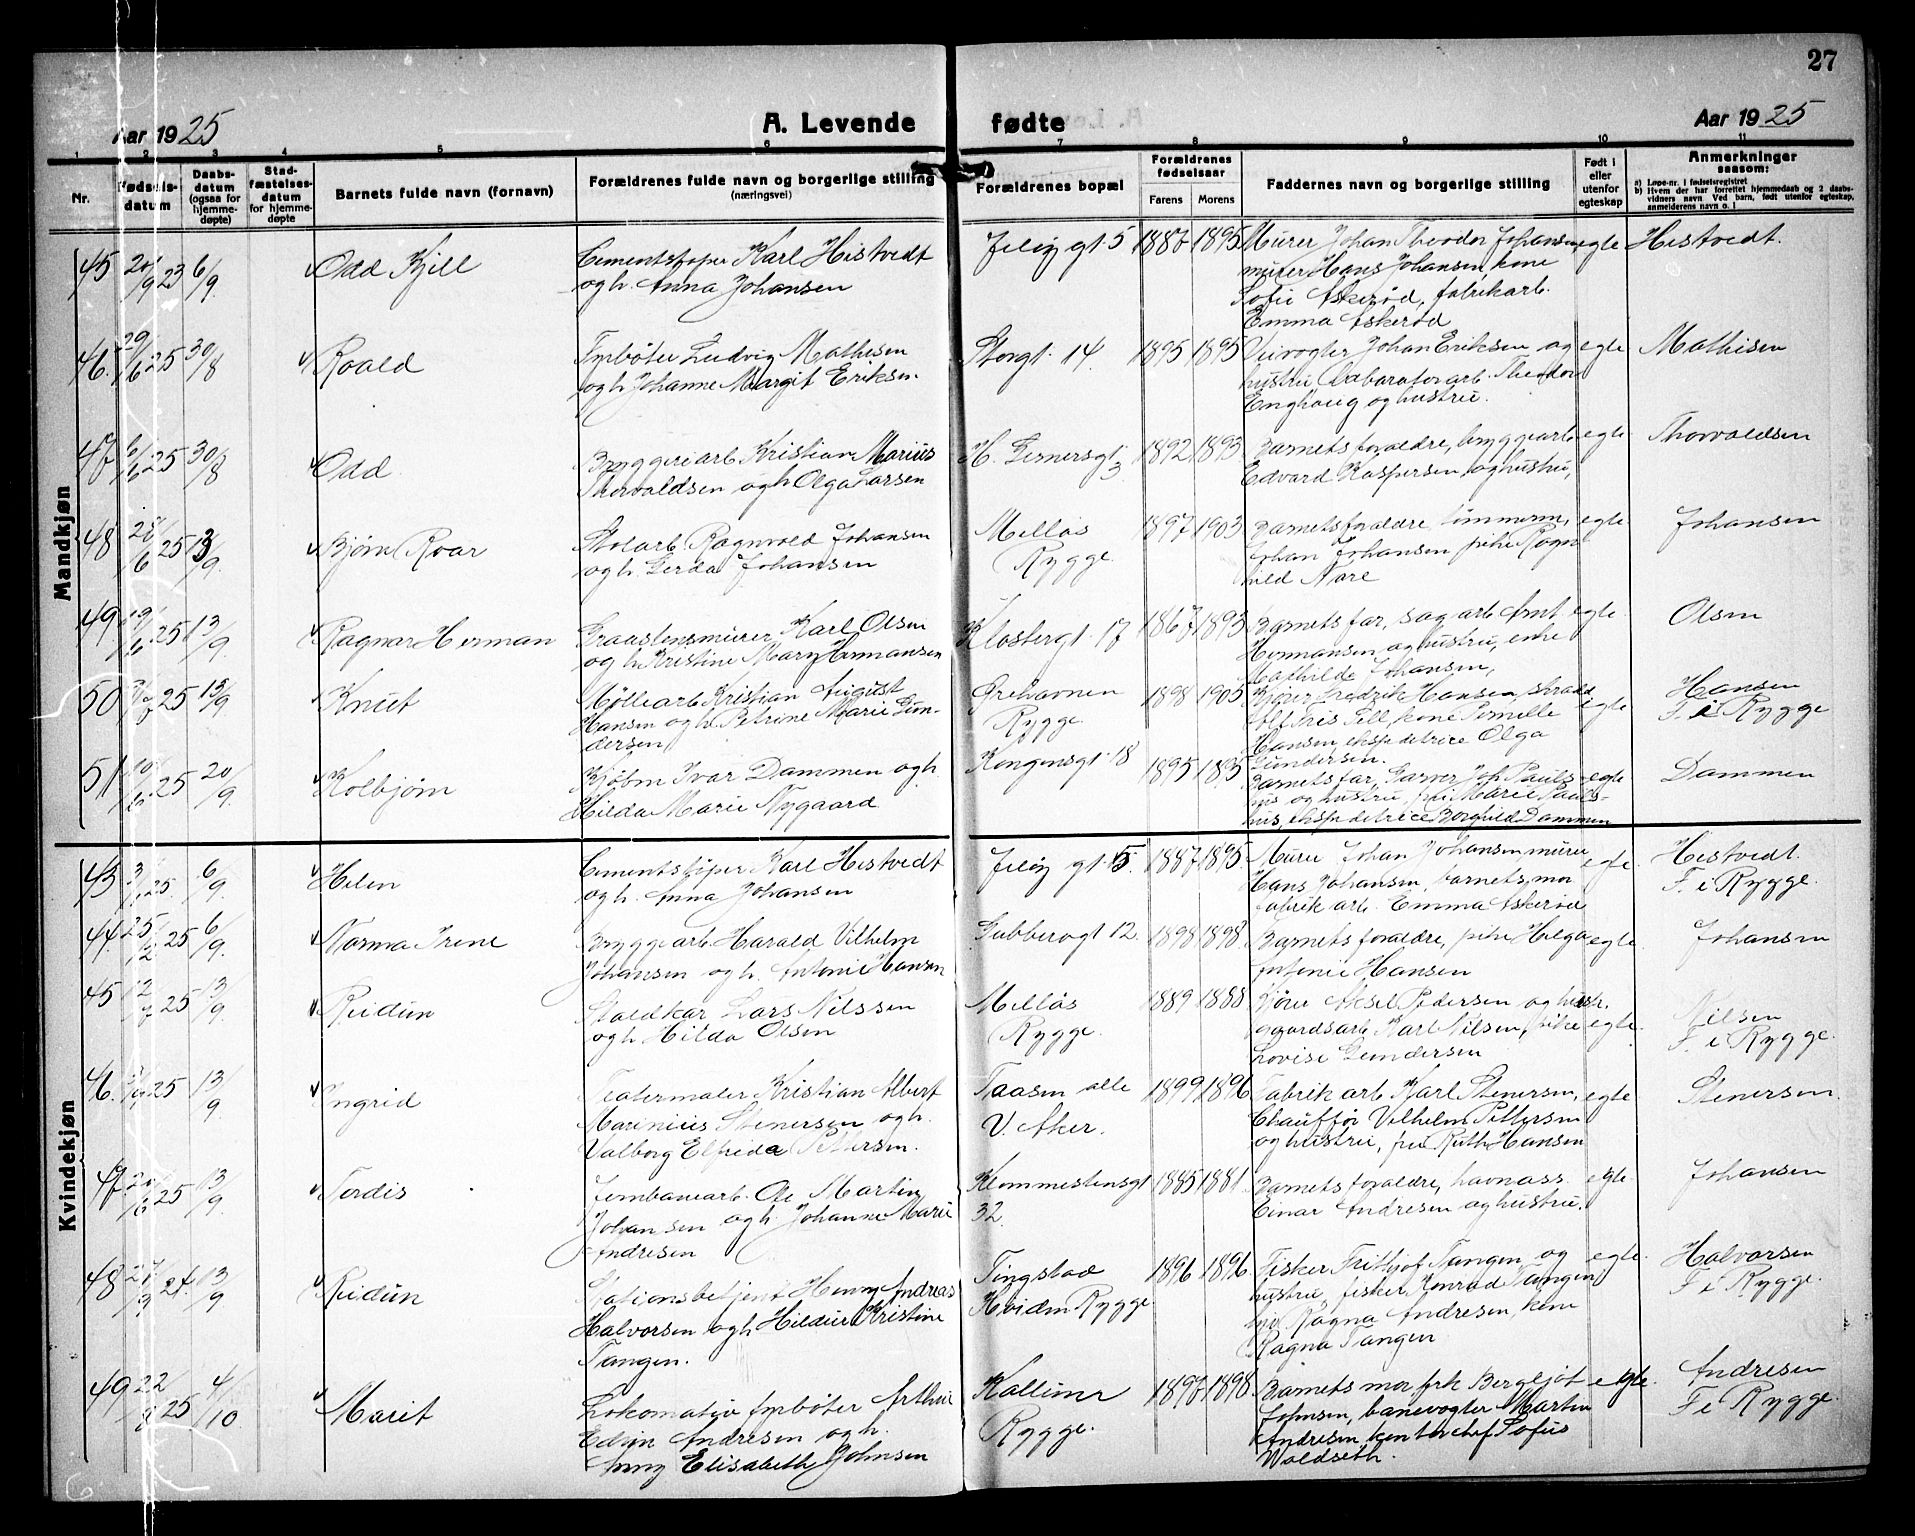 27
Aar 1925
A. Levende
fødte
Aar 1925
1 2 3 4 5 6 7 8 9 10 11
Nr.
Fødsels-
datum
Daabs-
datum
(ogsaa for
hjemme-
døpte)
Stad-
fæstelses-
datum
for hjemme-
døpte
Barnets fulde navn (fornavn)
Forældrenes fulde navn og borgerlige stilling
(næringsvei)
Forældrenes bopæl
Forældrenes
fødselsaar
Farens Morens
Faddernes navn og borgerlige stilling
Født i
eller
utenfor
egteskap
Anmerkninger
saasom:
a) Løpe-nr. i fødselsregistret
b) Hvem der har forrettet hjemmedaab og 2 daabs-
vidners navn. Ved barn, født utenfor egteskap,
anmelderens navn o. l
Mandkjøn
45 23 6/9 Odd Kjell
Cementstøper Karl Histvedt
og h. Anna Johansen
Jeløy gt. 5 1887 1895
Murer Johan Theodor Johansen
murer Hans Johansen, kone
Sofie Askerød, fabrikarb.
Emma Askerød
egte Histvedt.
46. 29/6 25 30/8 Roald
Fyrbøter Ludvig Mathisen
og h. Johanne Margit Eriksen.
Storgt. 14. 1895 1895
Veivogter Johan Eriksen og
hustru, Labaratorarb. Theodor
Enghaug og hustru.
egte Mathisen
47 6/6 25 30/8 Odd
Bryggeriarb Kristian Marius
Thorvaldsen og h Olga Larsen
H. Gernersgt. 3 1892 1893
Barnets foraldre, bryggearb
Edvard Kaspersen og hustru,
egte Thorvaldsen
48 25 13/9 Bjørn Roar
Stolarb. Ragnvald Johansen
og h. Gerda Johansen
Melløs
Rygge. 1897 1903
Barnets foraldre, tømmerm.
Johan Johansen pike Ragn
hild Nare
egte Johansen
49 19/6 25 13/9 Ragnar Herman
Graastensmurer Karl Olsen
og h. Kristine Mary Hermansen
Klostergt. 17 1867 1893
Barnets far, sag. arb Arnt
Hermansen og hustru, enke
Mathilde Johansen,
egte. Olsen
50 25 13/9 Knut
Møllearb Kristian August
Hansen og h. Petrine Marie Gun-
dersen
Ørehavnen
Rygge 1898 1905
Kjører Fredrik Hansen, skradd
Hansen, ekspeditrice Olga
Gundersen.
egte Hansen
F. i Rygge
51 10/6 25 20/9. Kolbjørn
Kjøbm Ivar Dammen og h.
Hilda Marie Nygaard
Kongensgt. 18 1895 1895
Barnets far, Garver Joh. Pauls-
hus og hustru, frk Marie Pauls-
hus, ekspeditrice Borghild Dammen
egte Dammen
Kvindekjøn
43 25. 6/9. Helen
Cementstøper Karl Histvedt
og h. Anna Johansen
Jeløy gt. 5. 1887 1895.
Murer Johan Johansen, murer
Hans Johansen, barnets mor
fabrik arb. Emma Askerød
egte. Histvedt.
F. i Rygge.
44. 25 6/9. Norma Irene
Bryggearb Harald Vilhelm
Johansen og h. Antonie Hansen
Gubberogt 12. 1898 1898.
Barnets foraldre, pike Helga
Antonie Hansen
egte. Johansen
45 12/7 25 13/9. Reidun
Staldkar Lars Nilssen
og h. Hilda Olsen
Melløs
Rygge. 1889 1888
Kjører Aksel Pedersen og hustr.
gaardsarb. Karl Nilsen, pike
Lovise Gundersen
egte. Nilsen
F. i Rygge.
46. 25 13/9 Ingrid
Teatermaler Kristian Albert
Marinius Stenersen og h.
Valborg Elfrida Pettersen.
Taasen alle
V. Aker. 1899 1896
Fabrik arb. Karl Stenersen,
Chauffør Vilhelm Pettersen
og hustru, frk Ruth Hansen
egte Stenersen.
47 25 13/9 Tordis
Jernbanearb. Ole Martin
Johansen og h. Johanne Marie
Andresen
Klommestensgt
32. 1885 1881.
Barnets foraldre, havnass.
Einar Andresen og hustru.
egte Johansen
48 24. 13/9 Reidun
Stationsbetjent Henry Andreas
Halvorsen og h Hildur Kristine
Tangen.
Tingstad
Hviden Rygge 1896 1896
Fisker Frithjof Tangen og
hustru, fisker Konrad Tangen
Ragna Andresen, kone
Ragna Tangen
egte. Halvorsen
F. i Rygge.
49 22/8 25 4/10 Marit
Lokomotiv fyrbøter Arthur
Edvin Andresen og h.
Anny Elisabeth Johnsen
Kallum
Rygge. 1897 1898
Barnets mor, frk Bergljot
Johnsen, banevogter Martin
Andresen, kontorchef Sofus
Woldseth.
egte. Andresen
F. i Rygge.